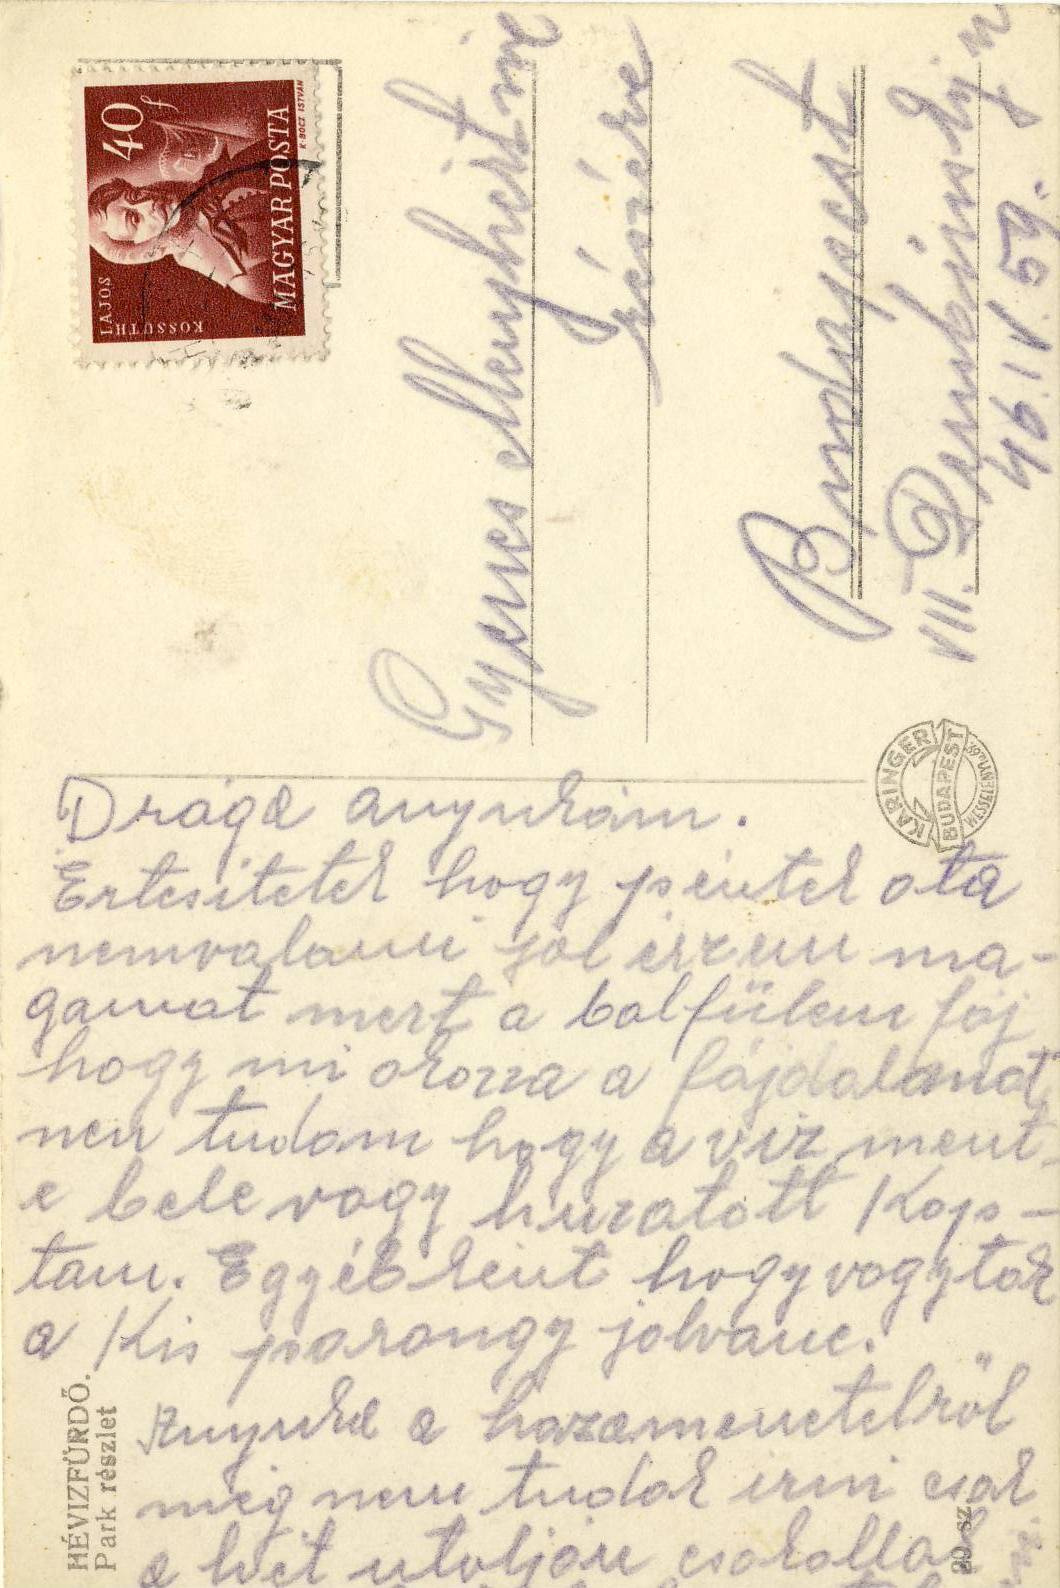 40 f
LAJOS
KOSSUTH
MAGYAR POSTA
Gyenes Menyhértné
részére
Budapest
VII. Dembinszky u
46. IV. 59.
KARINGER
BUDAPEST
WESSELÉNYI
Drága anyukám.
Ertesitelek hogy péntek ota
nemvalami jól érzem ma-
gamat mert a balfülem fáj
hogy mi okozza a fájdalamat
nem tudom hogy a viz ment
e bele vagy huzatott Kap-
tam. Egyébként hogy vagytok
a Kis parangy jolvane.
Anyuka a hazamenetelről
még nem tudok irni csak
a hét utolján csokollak
HÉVIZFÜRDŐ.
Park részlet
20 sz